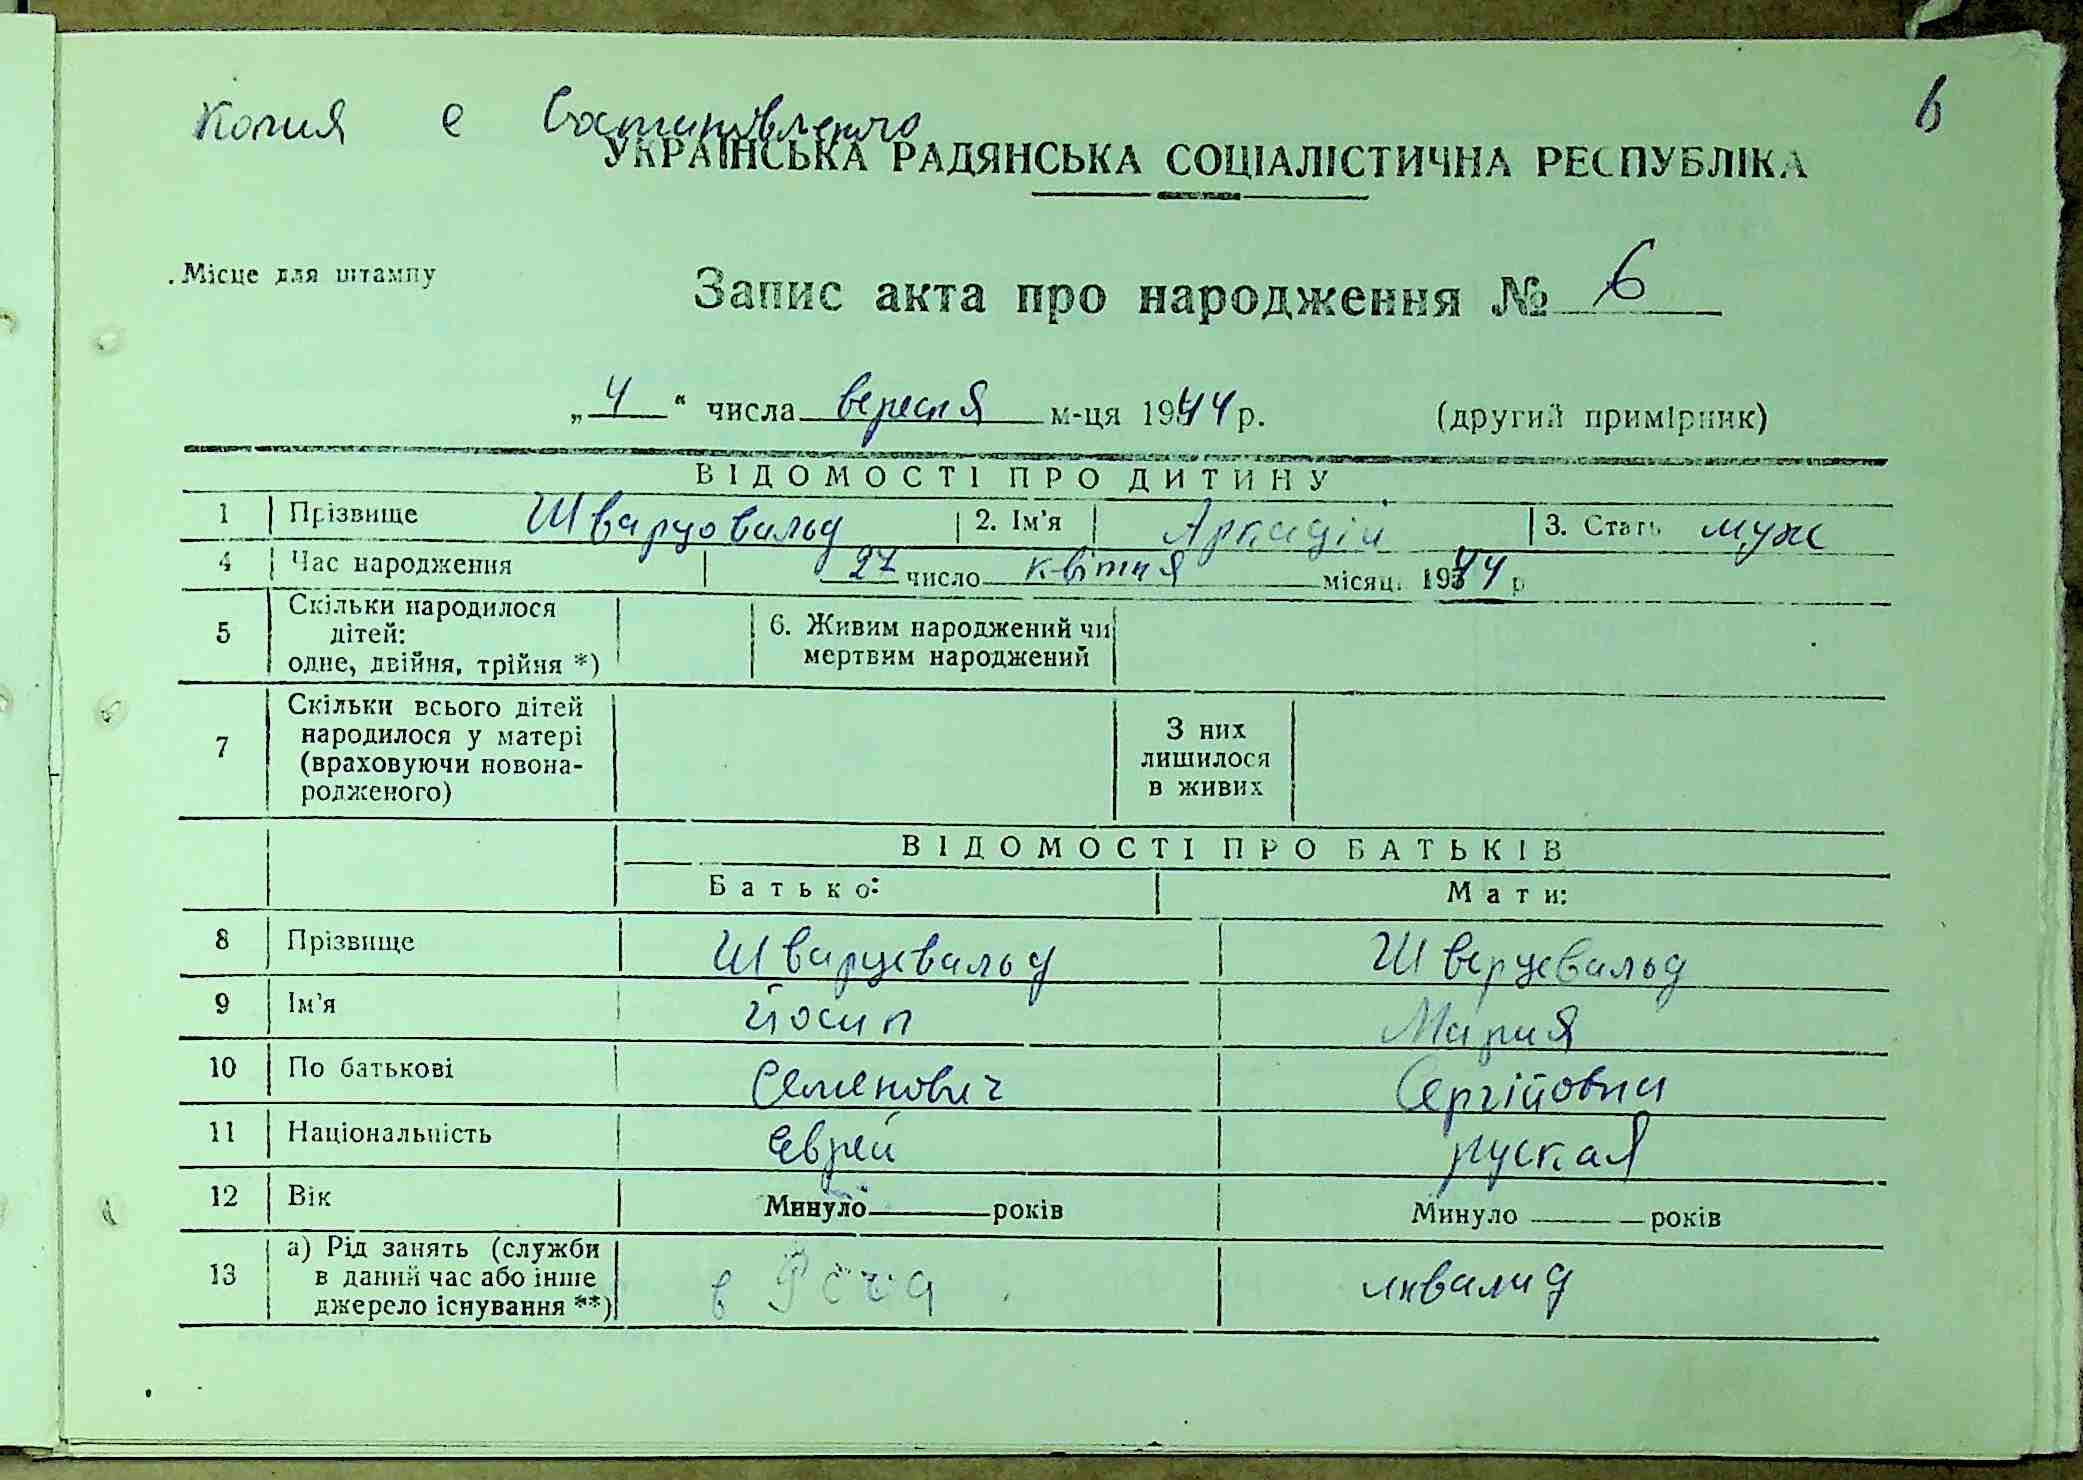 Копия е Востановлено
6
УКРАЇНСЬКА РАДЯНСЬКА СОЦІАЛІСТИЧНА РЕСПУБЛІКА
Місце для штампу
Запис акта про народження № 6
„4“ числа вересня м-ця 1944 р. (другий примірник)
ВІДОМОСТІ ПРО ДИТИНУ
1 Прізвище Шварцовальд 2. Ім'я Аркадій 3. Стать муж
4 Час народження 27 число квітня місяц. 1944 р
5 Скільки народилося дітей: одне, двійня, трійня *) 6. Живим народжений чи мертвим народжений
7 Скільки всього дітей народилося у матері (враховуючи новонародженого) З них лишилося в живих
ВІДОМОСТІ ПРО БАТЬКІВ
Батько: Мати:
8 Прізвище Шварцевальд Шверцевальд
9 Ім'я Йосип Мария
10 По батькові Семенович Сергійовна
11 Національність Еврей руская
12 Вік Минуло років Минуло років
13 а) Рід занять (служби в даний час або інше джерело існування **) в инвалид